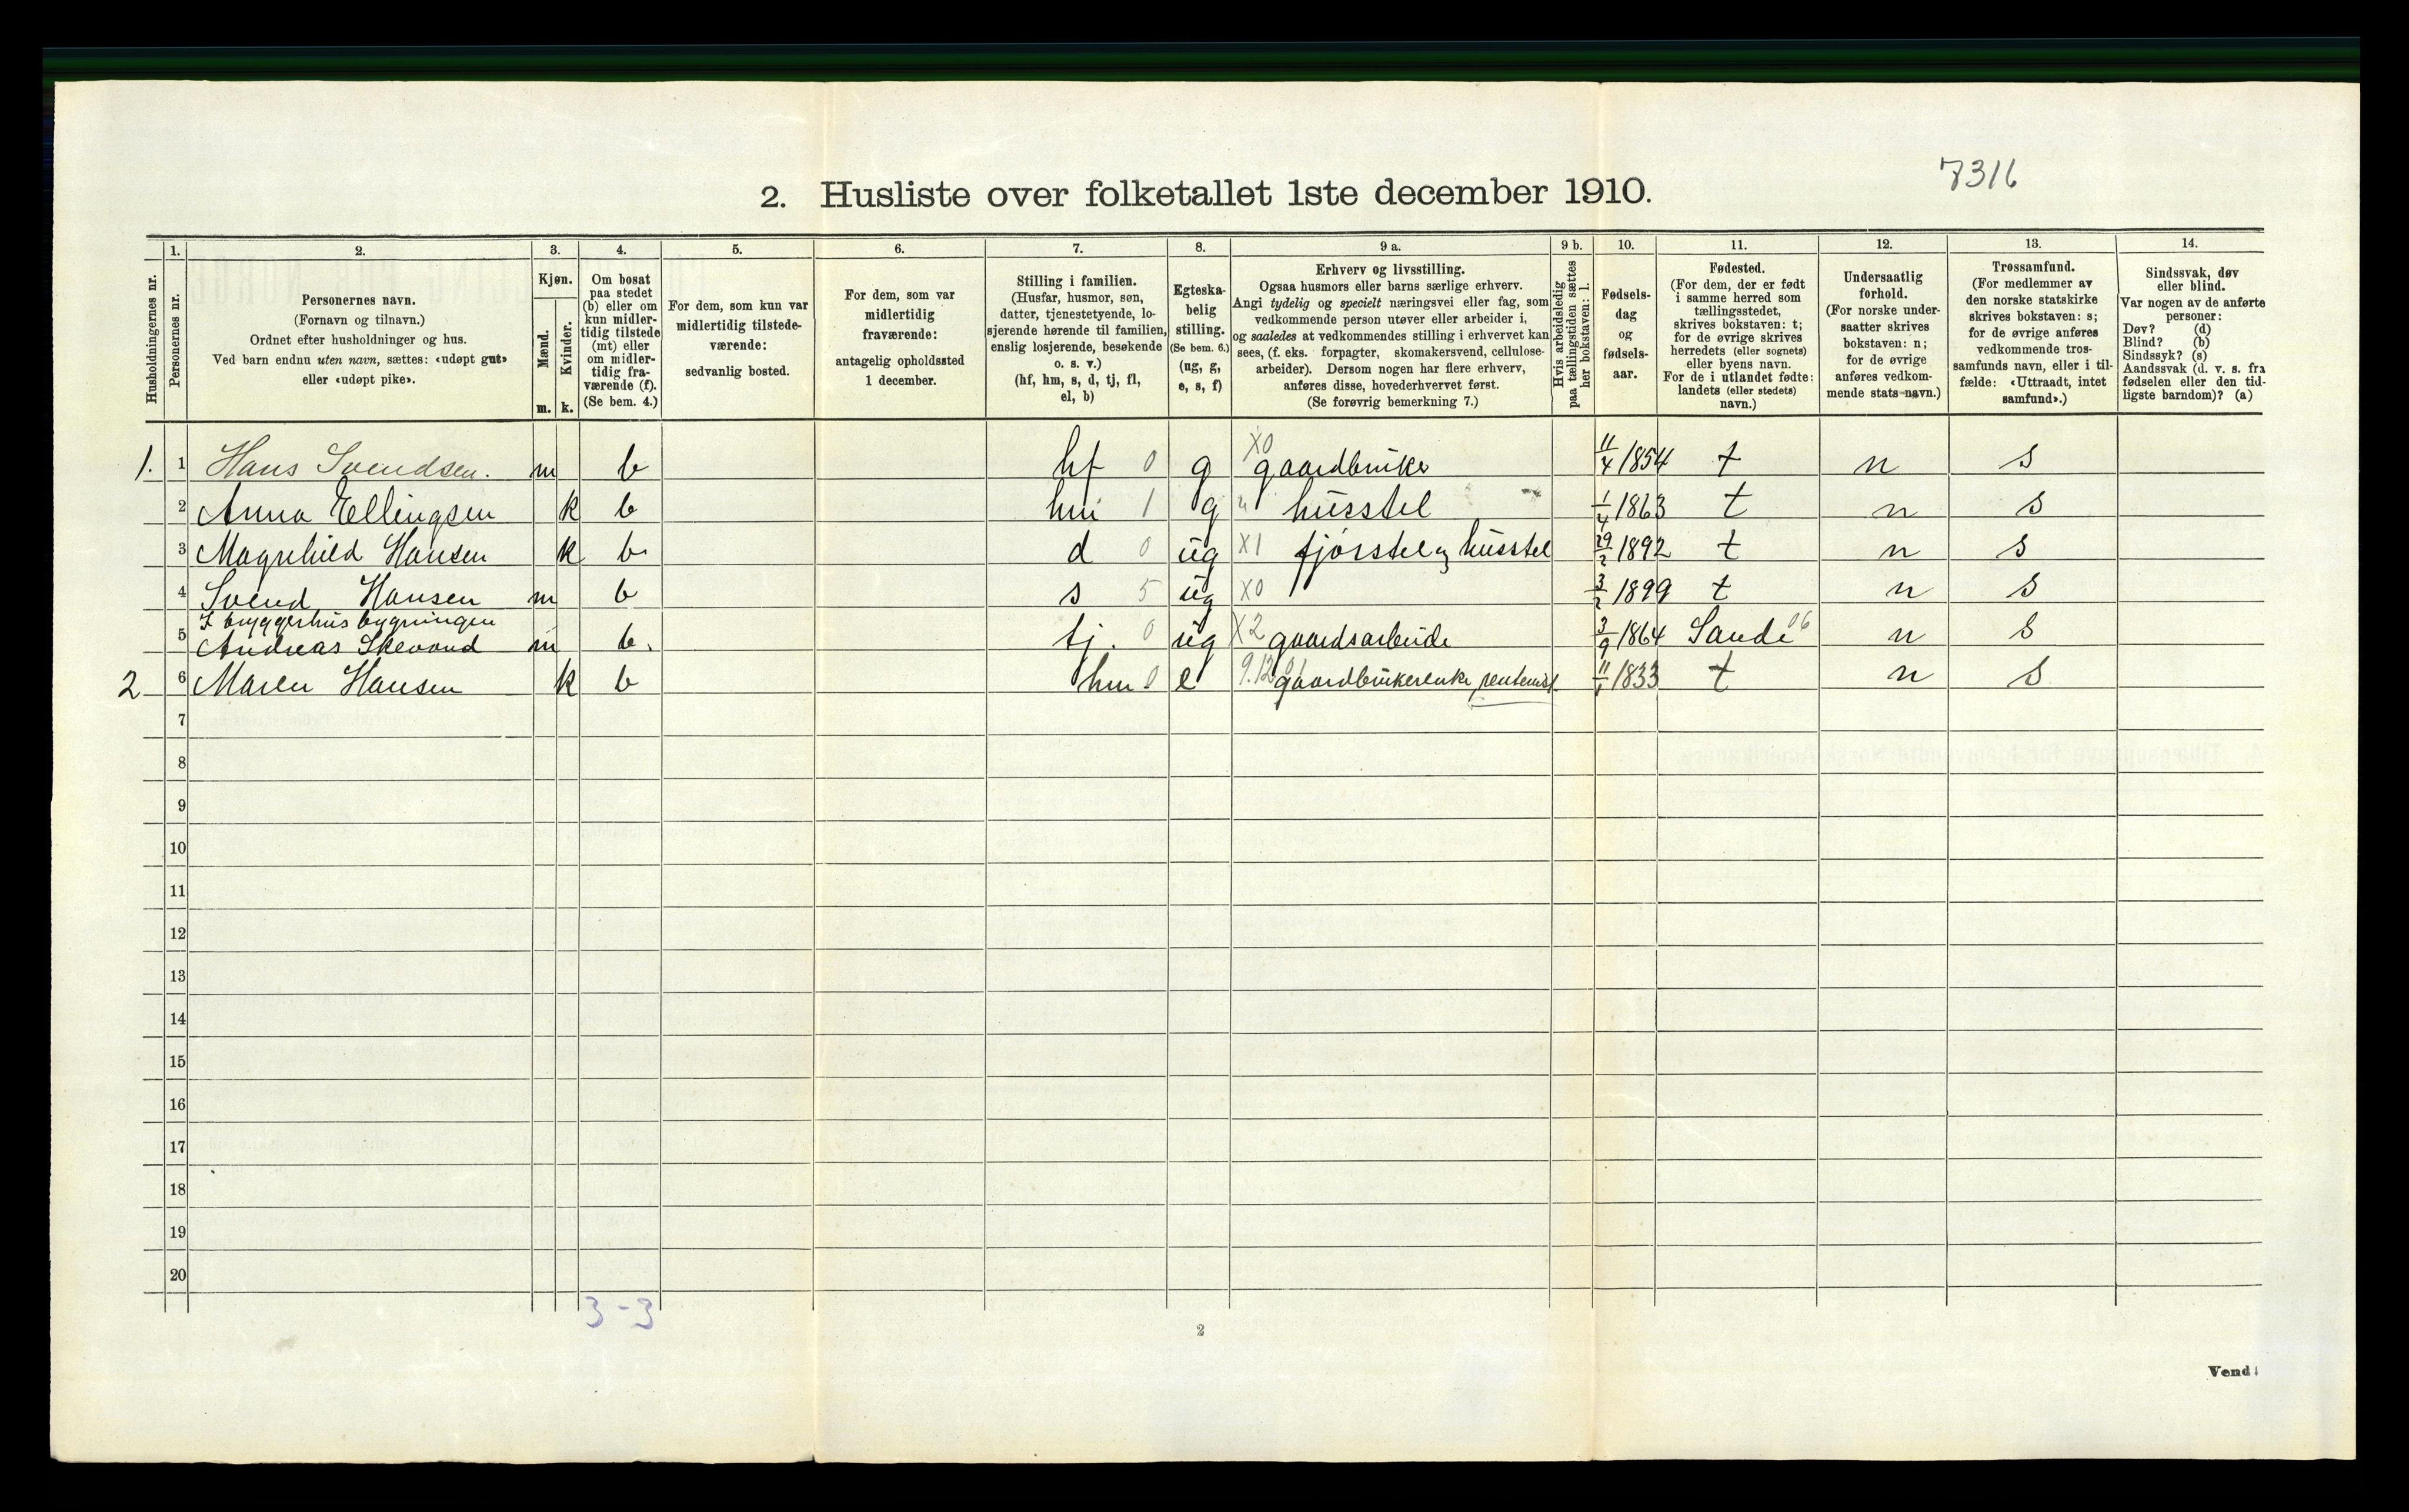 7316
2. Husliste over folketallet 1ste december 1910.
Husholdningernes nr.
1.
Personernes nr.
2.
Personernes navn.
(Fornavn og tilnavn.)
Ordnet efter husholdninger og hus.
Ved barn endnu uten navn, sættes: «udøpt gut»
eller «udøpt pike».
3.
Kjøn.
Mænd.
Kvinder.
m. k.
4.
Om bosat
paa stedet
(b) eller om
kun midler-
tidig tilstede
(mt) eller
om midler-
tidig fra-
værende (f).
(Se bem. 4.)
5.
For dem, som kun var
midlertidig tilstede-
værende:
sedvanlig bosted.
6.
For dem, som var
midlertidig
fraværende:
antagelig opholdssted
1 december.
7.
Stilling i familien.
(Husfar, husmor, søn,
datter, tjenestetyende, lo-
sjerende hørende til familien,
enslig losjerende, besøkende
o. s. v.)
(hf, hm, s, d, tj, fl,
el, b)
8.
Egteska-
belig
stilling.
(Se bem. 6.)
(ug, g,
e, s, f)
9 a.
Erhverv og livsstilling.
Ogsaa husmors eller barns særlige erhverv.
Angi tydelig og specielt næringsvei eller fag, som
vedkommende person utøver eller arbeider i,
og saaledes at vedkommendes stilling i erhvervet kan
sees, (f. eks. forpagter, skomakersvend, cellulose-
arbeider). Dersom nogen har flere erhverv,
anføres disse, hovederhvervet først.
(Se forøvrig bemerkning 7.)
9 b.
Hvis arbeidsledig
paa tællingstiden sættes
her bokstaven: l.
10.
Fødsels-
dag
og
fødsels-
aar.
11.
Fødested.
(For dem, der er født
i samme herred som
tællingsstedet,
skrives bokstaven: t;
for de øvrige skrives
herredets (eller sognets)
eller byens navn.
For de i utlandet fødte:
landets (eller stedets)
navn.)
12.
Undersaatlig
forhold.
(For norske under-
saatter skrives
bokstaven: n;
for de øvrige
anføres vedkom-
mende stats-navn.)
13.
Trossamfund.
(For medlemmer av
den norske statskirke
skrives bokstaven: s;
for de øvrige anføres
vedkommende tros-
samfunds navn, eller i til-
fælde: «Uttraadt, intet
samfund».)
14.
Sindssvak, døv
eller blind.
Var nogen av de anførte
personer:
Døv? (d)
Blind? (b)
Sindssyk? (s)
Aandssvak (d. v. s. fra
fødselen eller den tid-
ligste barndom)? (a)
1. 1 Hans Svendsen. m b hf 0 g X0 gaardbruker 11/4 1854 t n s
2 Anna Ellingsen k b hm 1 g " husstel 1/4 1863 t n s
3 Magnhild Hansen k b d 0 ug X1 fjørstel og husstel 29/2 1892 t n s
4 Svend Hansen m b s 5 ug X0 3/2 1899 t n s
I bryggerhusbygningen
5 Andreas Skevand m b. tj. 0 ug X2 gaardsarbeide 3/9 1864 Sande 06 n s
2 6 Maren Hansen k b hm 0 e 9.12 gaardbrukerenke, rentenist 11/1 1833 t n s
7
8
9
10
11
12
13
14
15
16
17
18
19
20
3 - 3
2
Vend!